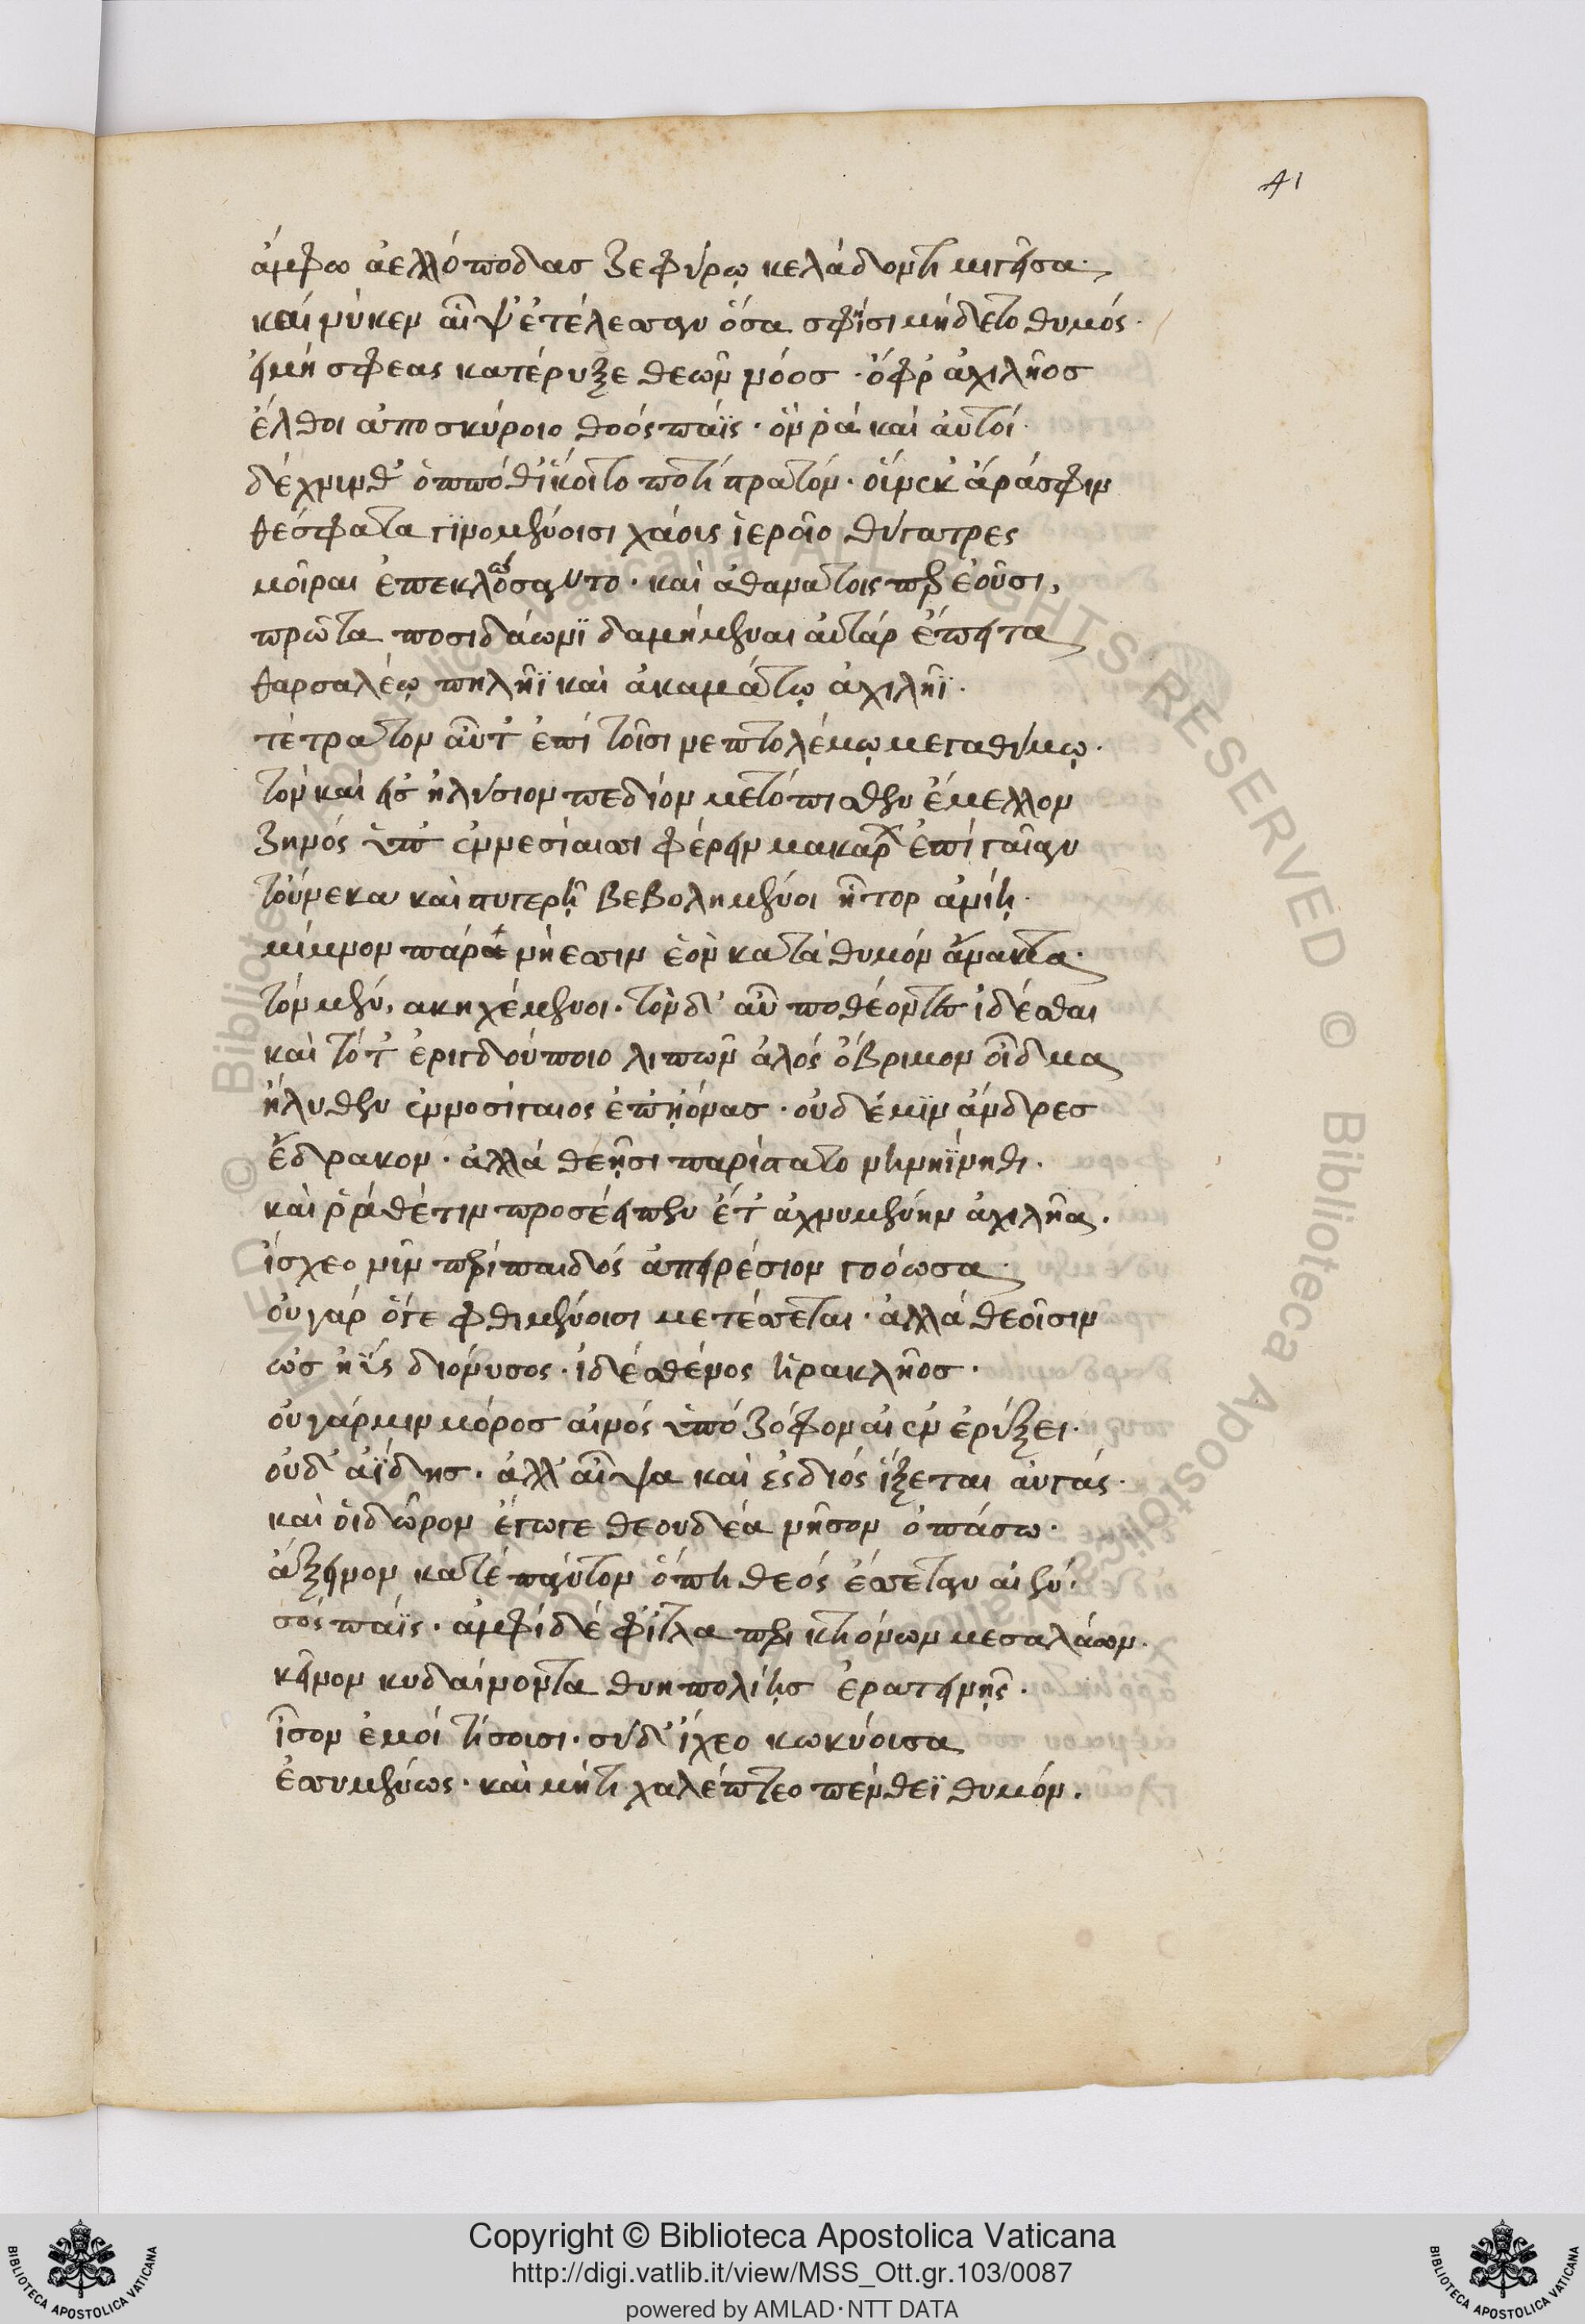 41
ἄμφω ἀελλόποδας ζεφύρῳ κελάδοντι μιγεῖσα.
καί νύκεν αἶψ' ἐτέλεσαν ὅσα σφίσι μήδετο θυμός.
εἰ μή σφεας κατέρυξε θεῶν νόος. ὄφρ' ἀχιλῆος
ἔλθοι απο σκύροιο θοός πάϊς. ὅν ῥά καὶ αὐτοί.
δέχνινθ' ὁππόθ' ἵκοιτο ποτί πρατόν. οἵνεκ' ἄράσφιν
θέσφατα γϊνομένοισι χάοις ἱεραῖο θύγατρες
μοῖραι ἐπεκλώσαντο. καὶ ἀθανάτοις περ ἐοῦσι,
πρῶτα ποσιδάωνϊ δαμήμεναι αὐτάρ ἔπειτα
θαρσαλέῳ πηλῆϊ καὶ ἀκαμάτῳ ἀχιλῆϊ.
τέτρατον αὖτ' ἐπί τοῖσι νεπτολέμῳ μεγαθύμῳ.
τόν καί εἰσ ηλύσιον πεδίον μετόπισθεν ἔμελλον
ζηνός ὑπ' ἐννεσίαισι φέρειν μακάρων ἐπί γαῖαν
τοὔνεκα καὶ στυγερῇ βεβολημένοι ἦτορ ἀνίῃ.
μίμνον πάρα νήεσιν ἑόν κατὰ θυμόν ἄνακτα.
τόν μέν, ακηχέμενοι. τόν δ' αὖ ποθέοντες ἰδέσθαι
καὶ τότ' ἐριγδούποιο λιπών ἁλός ὄβριμον οἶδμα
ἤλυθεν ἐννοσίγαιος ἐπ' ηϊόνας. οὐδέ μϊν ἄνδρες
ἔδρακον. ἀλλά θεῇσι παρίστατο νηρηΐνηθι.
καὶ ῥά θέτιν προσέειπεν ἔτ' ἀχνυμένην ἀχιλῆα.
ἴσχεο νῦν περί παιδός ἀπειρέσιον γοόωσα.
οὐ γάρ ὅγε φθιμένοισι μετέσσεται. ἀλλά θεοῖσιν
ὡσ ηΰς διόνυσος. ἰδέ σθένος ἡρακλῆος.
οὐ γάρ μιν μόροσ αἰνός ὑπό ζόφον αἰέν ἐρύξει.
οὐδ' ἀΐδης. ἀλλ' αἶψα καὶ ἐς διός ἵξεται αὐγάς.
καὶ οἱ δῶρον ἔγωγε θεουδέα νῆσον ὀπάσω.
ἄξεινον κατέ πόντον ὅπῃ θεός ἔσσεται αἰέν.
σός πάϊς. ἀμφί δέ φῦλα περικτιόνων μεγαλάων.
κεῖνον κυδαίνοντα θυηπολίῃσ ἐρατεινῇς.
ἶσον ἐμοί τίσοισι. σύ δ' ἴσχεο κωκύοισα
ἐσσυμένως. καὶ μήτι χαλέπτεο πένθεϊ θυμόν.
© Biblioteca Apostolica Vaticana ALL RIGHTS RESERVED
Copyright © Biblioteca Apostolica Vaticana
http://digi.vatlib.it/view/MSS_Ott.gr.103/0087
powered by AMLAD·NTT DATA
BIBLIOTECA APOSTOLICA VATICANA
BIBLIOTECA APOSTOLICA VATICANA